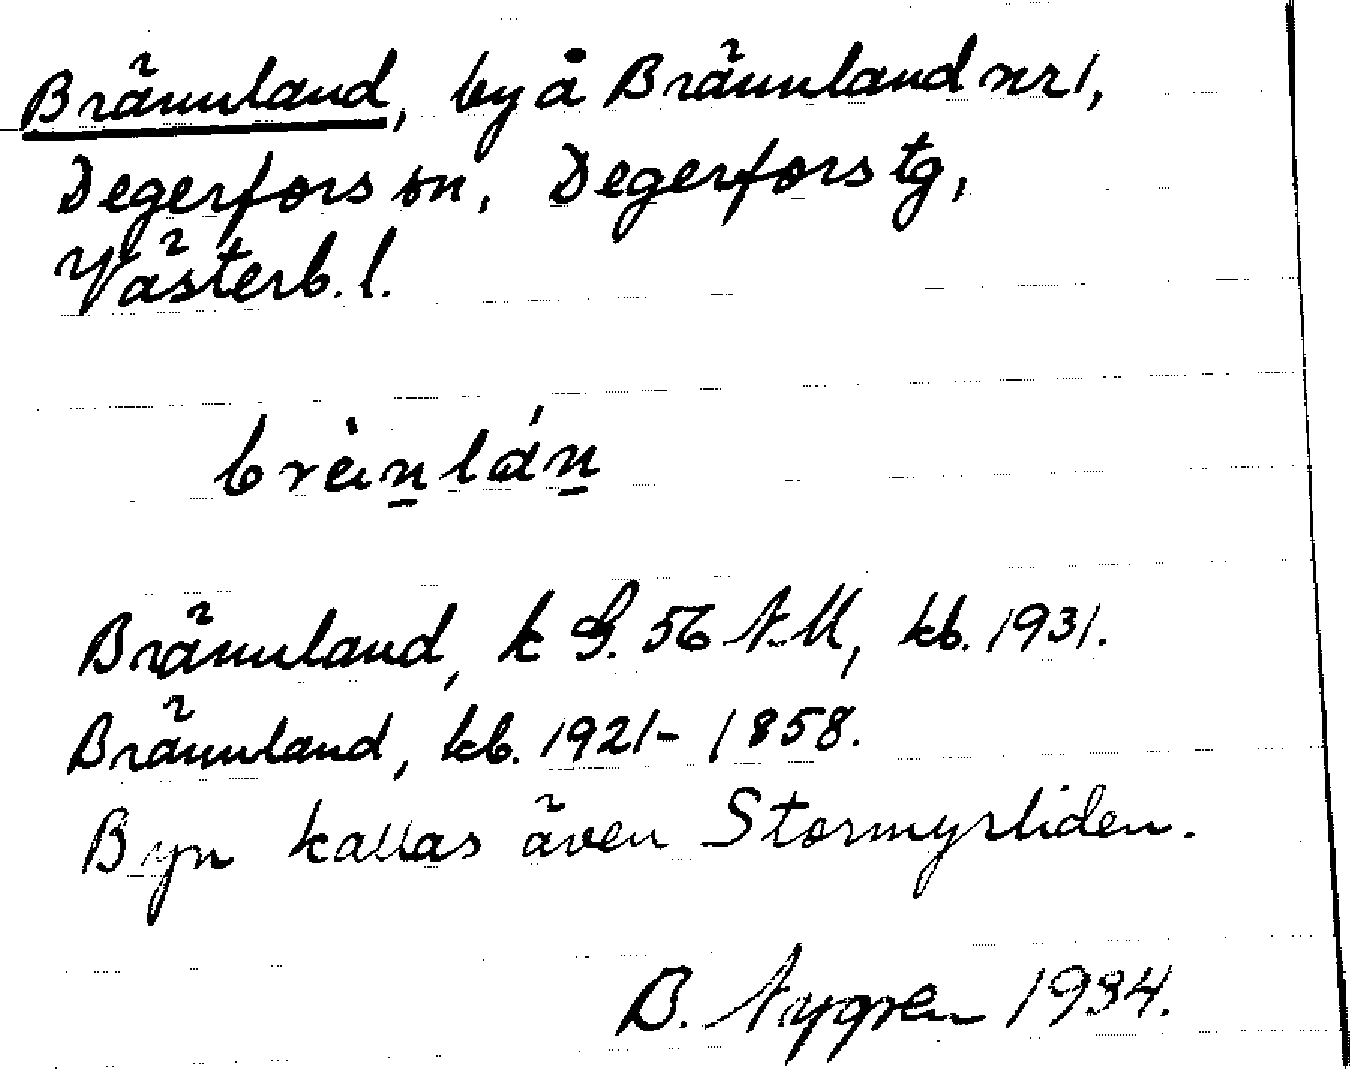 Brännland, by å Brännland nr 1,
Degerfors sn, Degerfors tg,
Västerb. l.
brèn̲lán̲
Brännland, k G. 56 N.M, kb. 1931.
Brännland, kb. 1921-1858.
Byn kallas även Stormyrliden.
B. Nygren 1934.